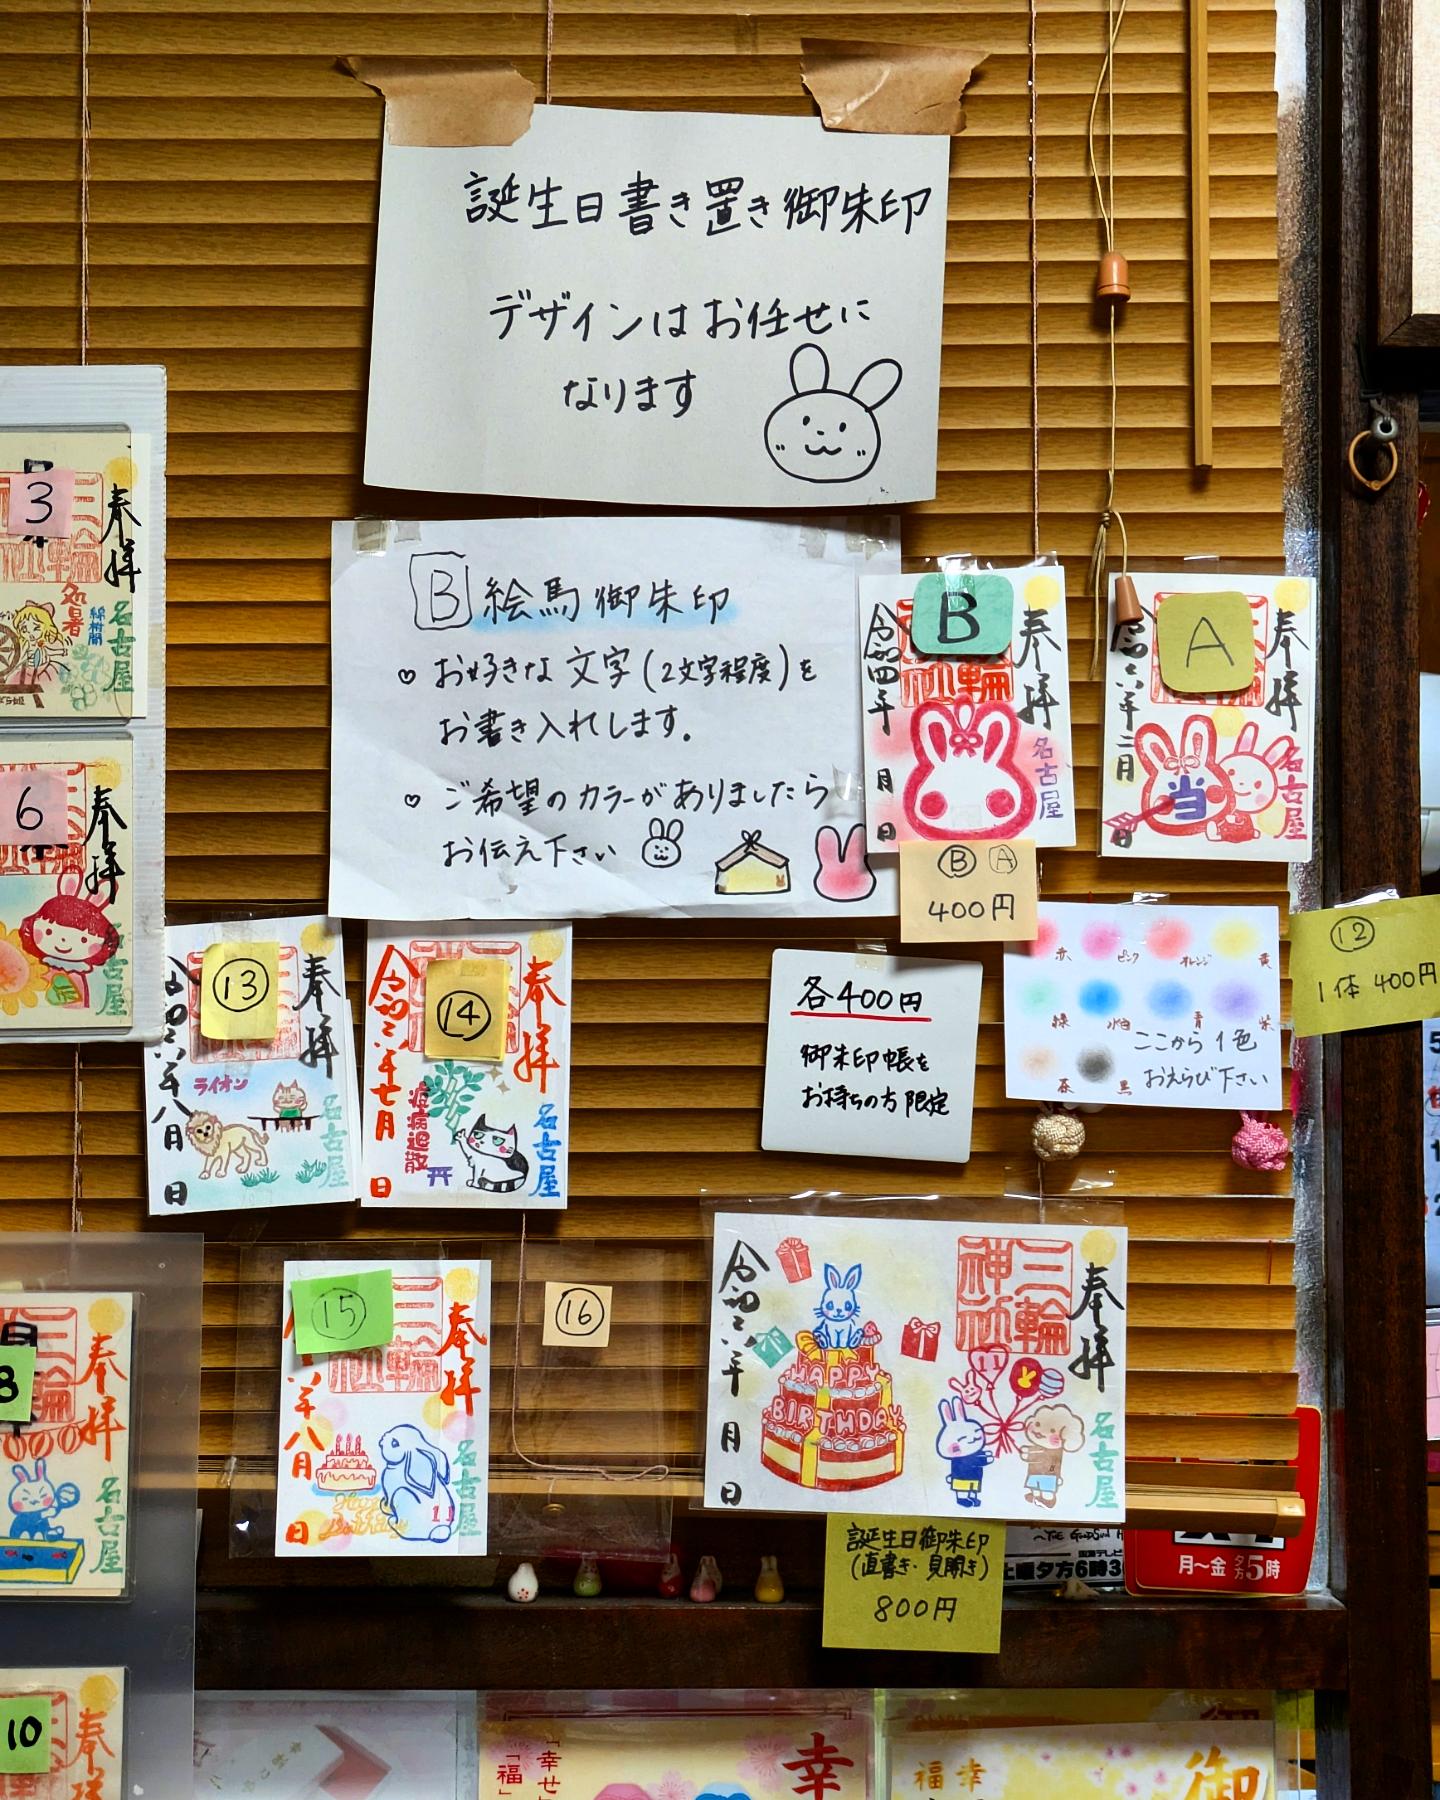 誕生日書き置き御朱印
デザインはお任せに
なります
B 絵馬御朱印
♡ お好きな文字(2文字程度)を
お書き入れします。
♡ ご希望のカラーがありましたら
お伝え下さい
B
奉拝
三輪神社
令和四年
月
日
名古屋
A
奉拝
令和六年二月
日
当
名古屋
Ⓑ Ⓐ
400円
赤 ピンク オレンジ 黄
緑 水色 青 紫
茶 黒
ここから1色
おえらび下さい
⑫
1体 400円
各400円
御朱印帳を
お持ちの方限定
3
奉拝
処暑
綿柎開
名古屋
6
奉拝
名古屋
⑬
奉拝
令和六年八月
日
ライオン
名古屋
⑭
奉拝
令和六年七月
日
疫病退散
名古屋
⑮
奉拝
年八月
日
名古屋
⑯
奉拝
三輪神社
令和六年
月
日
HAPPY
BIRTHDAY
名古屋
誕生日御朱印
(直書き・見開き)
800円
8
奉拝
名古屋
10
奉拝
土曜夕方6時30
月〜金 夕方5時
「幸せ
「福」
幸
幸
福
御